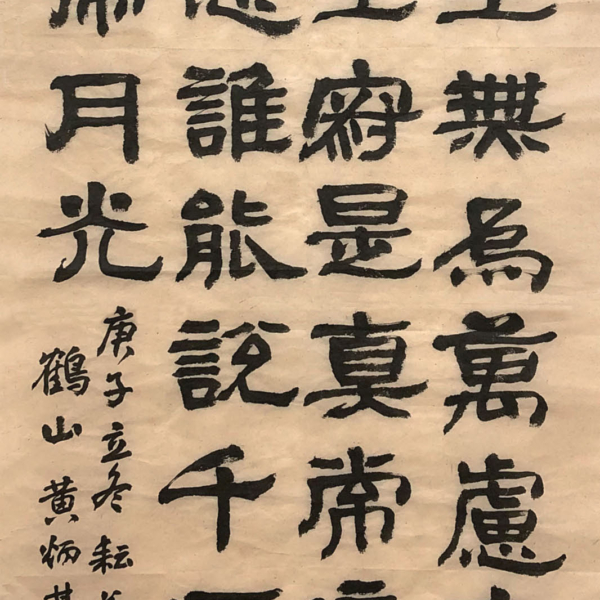 無為萬慮
是真常
誰能說千
月光
庚子立冬耘
鶴山黃炳